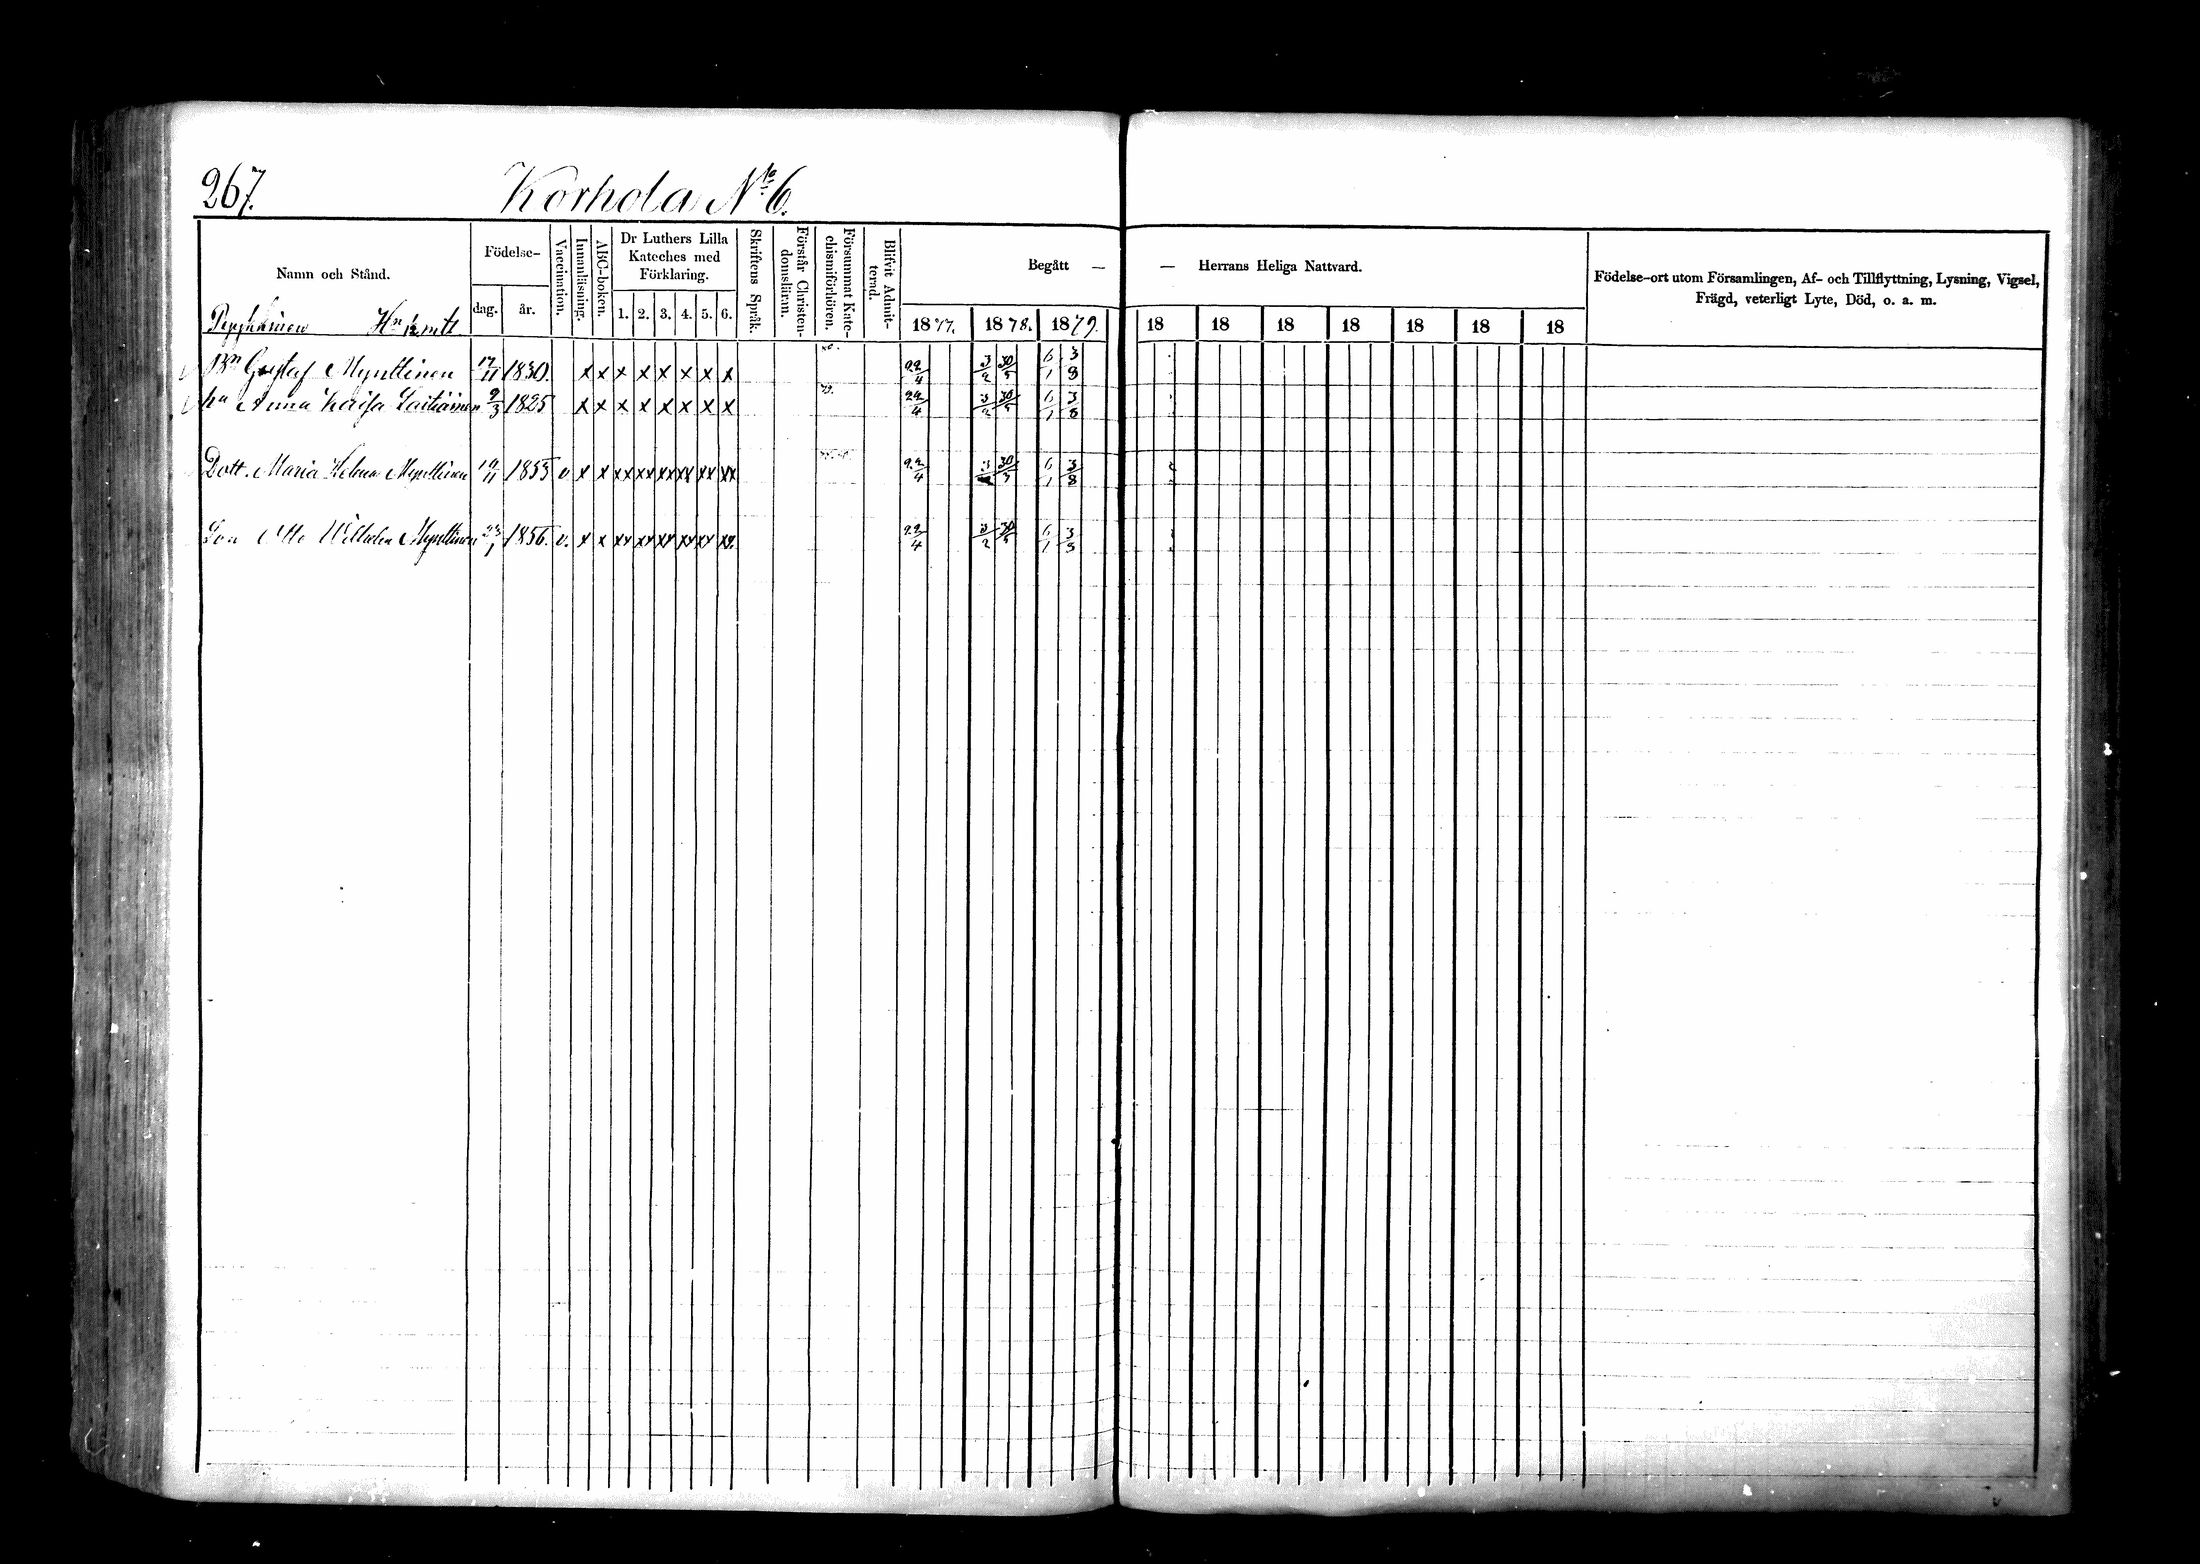 267.
Korhola No 6.
Namn och Stånd.
Födelse-
dag.
år.
Vaccination.
Innanläsning.
ABC-boken.
Dr Luthers Lilla
Kateches med
Förklaring.
1. 2. 3. 4. 5. 6.
Skriftens Språk.
Förstår Christen-
domsläran.
Försummat Kate-
chismiförhören.
Blifvit Admit-
terad.
Begått — — Herrans Heliga Nattvard.
1877. 1878. 1879. 18 18 18 18 18 18 18
Födelse-ort utom Församlingen, Af- och Tillflyttning, Lysning, Vigsel,
Frägd, veterligt Lyte, Död, o. a. m.
Hn 1/2 mtl
Bn Gustaf Mynttinen 17/11 1830. x x x x x x x x 22/4 3/2 30/5 6/1 3/8
hu Anna Kaisa Laitiainen 9/3 1825 x x x x x x x x 22/4 3/2 30/5 6/1 3/8
Dott. Maria Helena Mynttinen 19/11 1855 v x x xx xx xx xx xx xx 22/4 3/2 30/5 6/1 3/8
Son Otto Wilhelm Mynttinen 23/1 1856. v. x x xx xx xx xx xx xx. 22/4 3/2 30/5 6/1 3/8